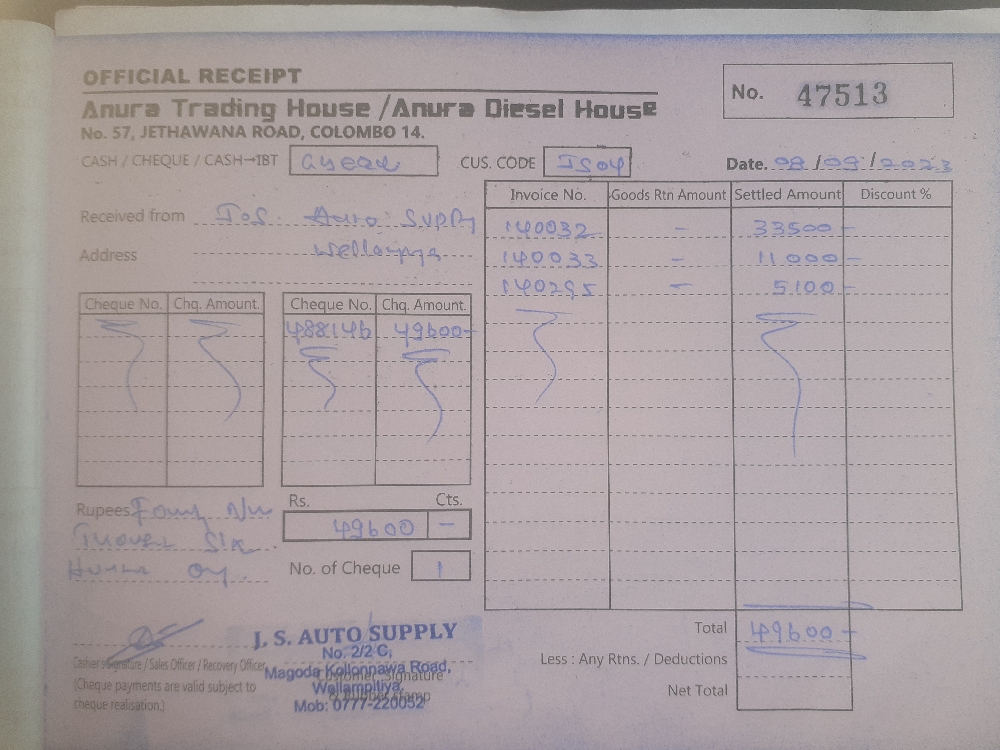 OFFICIAL RECEIPT
Anura Trading House / Anura Diesel House
No. 57, JETHAWANA ROAD, COLOMBO 14.
No. 47513
CASH / CHEQUE / CASH→IBT
CUS. CODE JS04
Date. 08/09/2023
Received from J.S. Auto Supply
Address
Invoice No. Goods Rtn Amount Settled Amount Discount %
140032 - 33500 -
140033 - 11000 -
140295 - 5100 -
Cheque No. Chq. Amount. Cheque No. Chq. Amount.
488146 49600-
Rupees
Rs. Cts.
49600 -
No. of Cheque 1
Total 49600 -
Less : Any Rtns. / Deductions
Net Total
Cashier's Signature / Sales Officer / Recovery Officer
(Cheque payments are valid subject to
cheque realisation.)
Customer Signature
& Rubber stamp
J. S. AUTO SUPPLY
No. 2/2 C,
Magoda Kollonnawa Road,
Wellampitiya.
Mob: 0777-220052